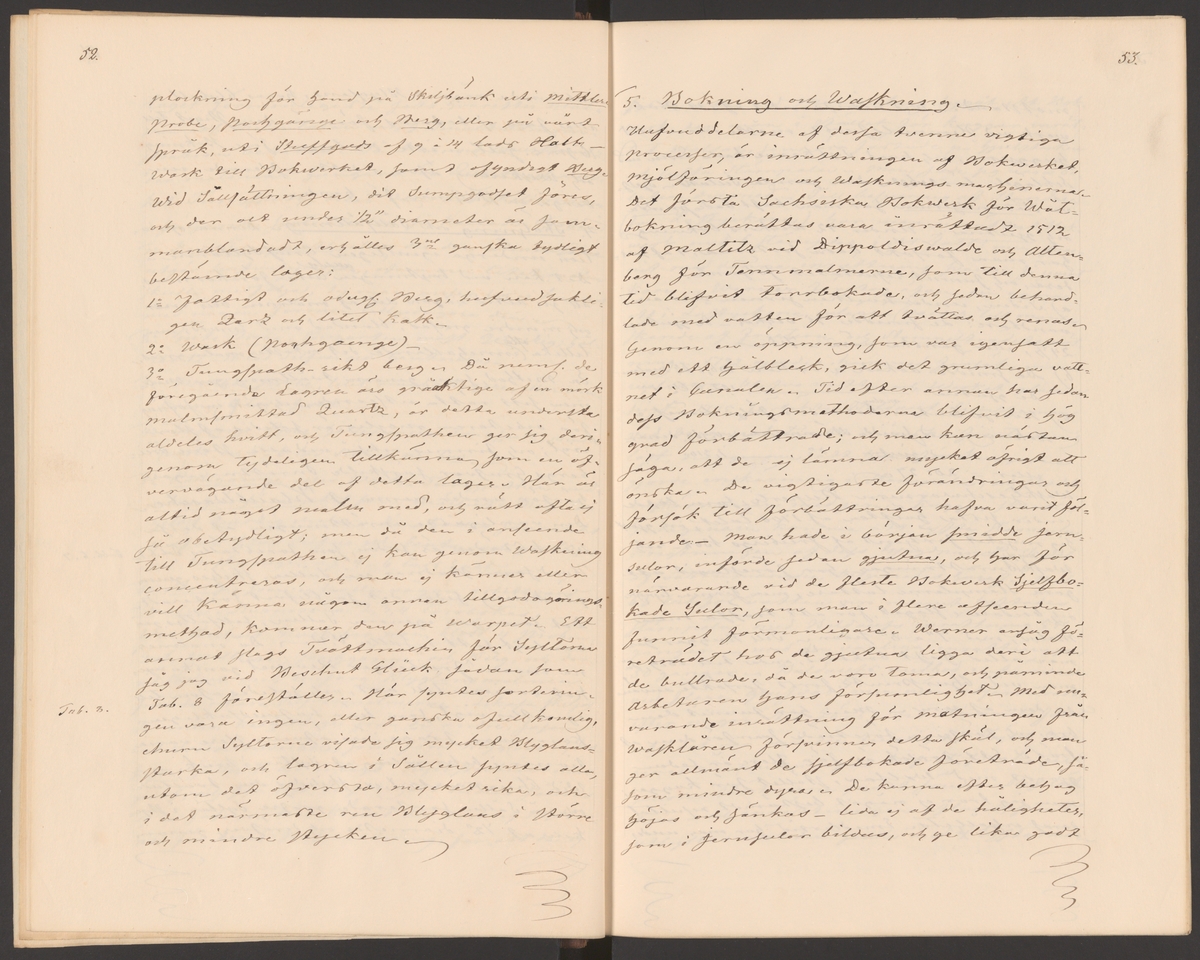 52.
plockning för hand på Skeijbänk uti Mittlere
Probe, Pochgänge och Berg, eller på vårt
språk, uti Stuffgods af 9 à 14 lods Halt –
Wark till Bokwerket, samt ofyndigt Berg.
Wid Sållsättningen, dit Sumpgodset föres,
och der allt under 1/2" diameter är sam-
manblandadt, erhålles 3ne ganska tydligt
bestämde lager:
1o Fattigt och odugl. Berg, hufvudsakli-
gen Qarz och litet Kalk.
2o Wark (Pochgaenge) –
3o Tungspath-rikt berg. Då nemf. de
föregående Lagren äro gråaktige af en mörk
malmsmittad Quartz, är detta understa
aldeles hvitt, och Tungspathen ger sig deri-
genom tydeligen tillkänna, som en öf-
vervägande del af detta lager. Här är
altid något malm med, och rätt ofta ej
så obetydligt; men då den i anseende
till Tungspathen ej kan genom Waskning
concentreras, och man ej känner eller
vill känna någon annan tillgodogörings-
method, kommer den på Warpet. Ett
annat slags Tvättmachin för Sylterne
såg jag vid Beschert Glück sådan som
Tab. 3.
Tab. 3 föreställer. Här syntes sorterin-
gen vara ingen, eller ganska ofullkomlig,
ehuru Sylterne visade sig mycket Blyglans-
starka, och lagren i Sållen syntes alla,
utom det öfversta, mycket rika, och
i det närmaste ren Blyglans i större
och mindre stycken.
53.
5. Bokning och Waskning.
Hufvuddelarne af dessa tvenne vigtiga
processer, är inrättningen af Bokwerket,
Mjölföringen och Wasknings machinerna.
Det första Sachsiska Bokwerk för Wåt-
bokning berättas vara inrättadt 1512
af Maltitz vid Dippoldiswalde och Alten-
berg för Tennmalmerne, som till denna
tid blifvit torrbokade, och sedan behand-
lade med vatten för att tvättas och renas.
Genom en öppning, som var igensatt
med ett hålbleck, gick det grumliga vatt-
net i Canalen. Tid efter annan har sedan
dess Bokningsmethoderna blifvit i hög
grad förbättrade; och man kan nästan
säga, att de ej lämna mycket öfrigt att
önska. De vigtigaste förändringar och
försök till förbättringar hafva varit föl-
jande. – Man hade i början smidde jern-
sulor, införde sedan gjutna, och har för
närvarande vid de fleste Bokwerk Sjelfbo-
kade Sulor, som man i flere afseenden
funnit förmonligare. Werner ansåg fö-
reträdet hos de gjutna ligga deri att
de bullrade, då de voro toma, och påminde
Arbetaren hans försumlighet. Med nu-
varande inrättning för matningen från
Waskluren försvinner detta skäl, och man
ger allmänt de sjelfbokade företräde, så-
som mindre dyra. De kunna efter behag
höjas och sänkas – lida ej af de håligheter,
som i jernsulor bildas, och ge lika godt